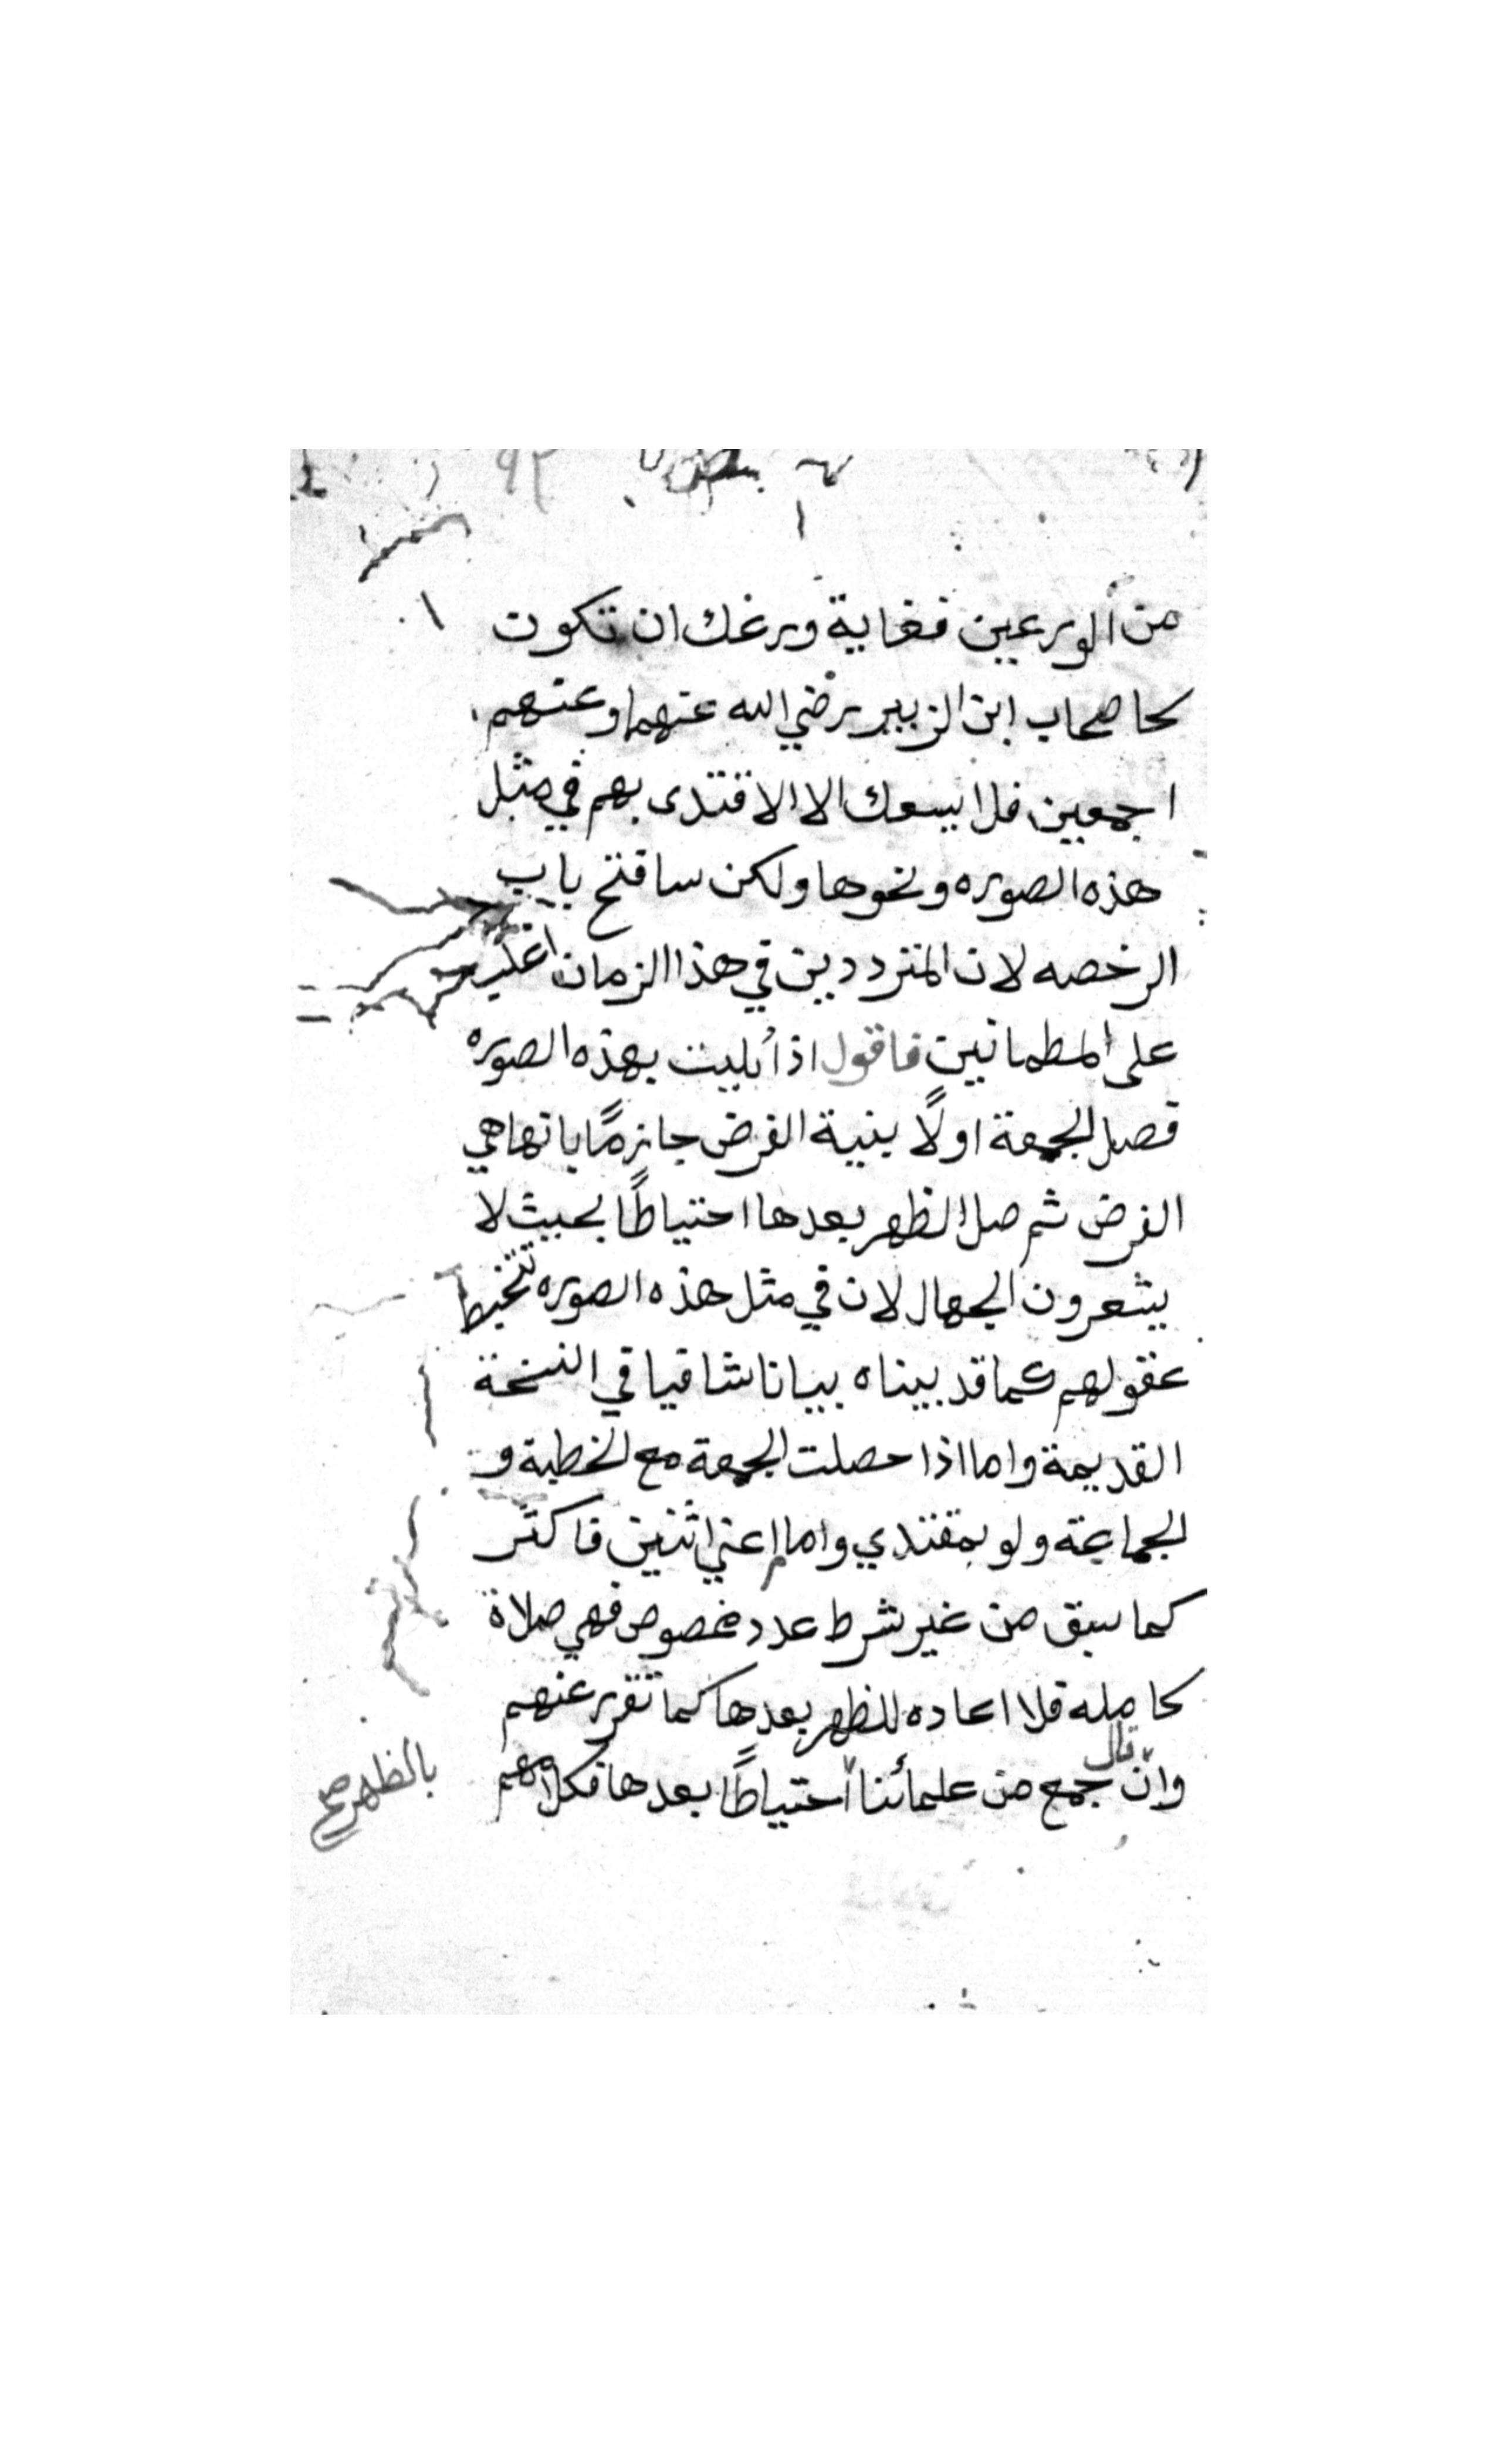 من الورعين فغاية ورعك ان تكون
كاصحاب ابن الزبير رضي الله عنهما وعنهم
اجمعين فلا يسعك الا الاقتدى بهم في مثل
هذه الصوره ونحوها ولكن سافتح باب
الرخصه لان المترددين في هذا الزمان اغلب
على المطمانين فاقول اذا بليت بهذه الصوره
فصل الجمعة اولًا بنية الفرض جازمًا بانها هي
الفرض ثم صل الظهر بعدها احتياطًا بحيث لا
يشعرون الجهال لان في مثل هذه الصوره تتخبط
عقولهم كما قد بيناه بيانا شافيا في النسخة
القديمة واما اذا حصلت الجمعة مع الخطبة و
الجماعة ولو بمقتدي وامام اعني اثنين فاكثر
كما سبق من غير شرط عدد مخصوص فهي صلاة
كامله فلا اعاده للظهر بعدها كما تقرر عنهم
وان قال جمع من علمائنا احتياطًا بعدها فكلامهم
بالظهر صح